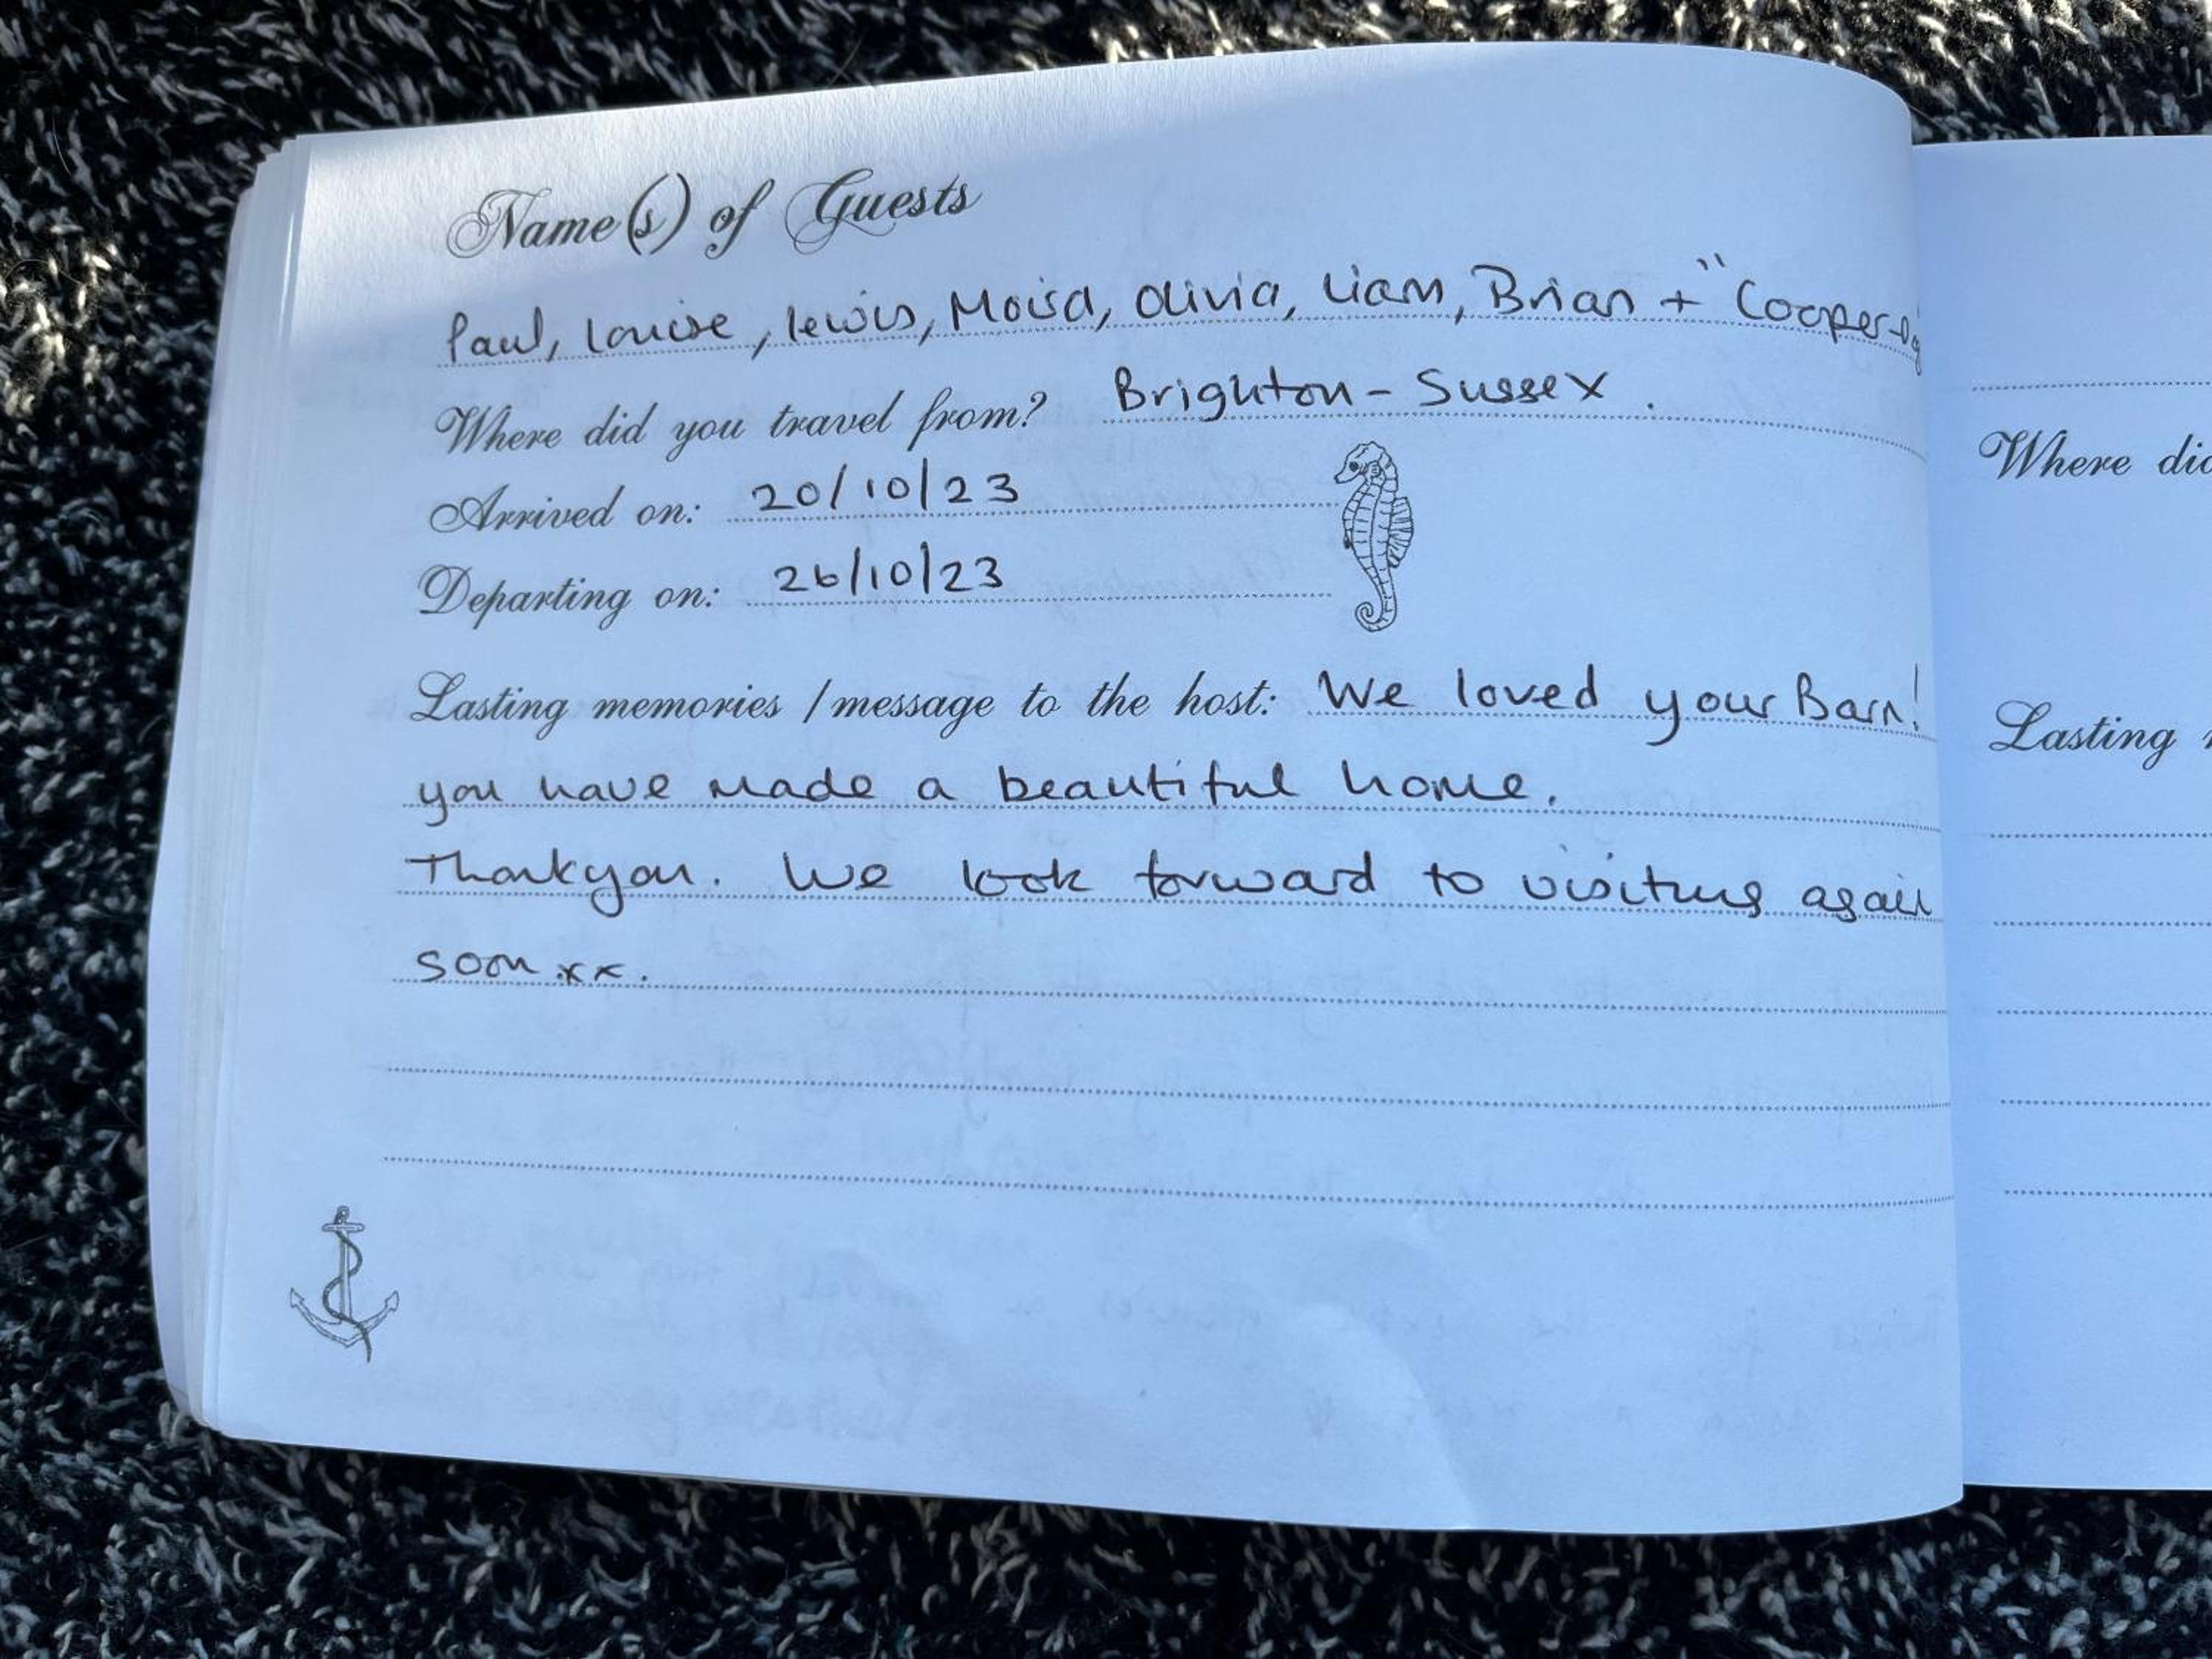 Name(s) of Guests
Paul, Louise, Lewis, Moira, Olivia, Liam, Brian + "Cooper-
Where did you travel from? Brighton - Sussex.
Arrived on: 20/10/23
Departing on: 26/10/23
Lasting memories / message to the host: We loved your Barn!
you have made a beautiful home.
Thankyou. We look forward to visiting again
soon xx.
Where did
Lasting